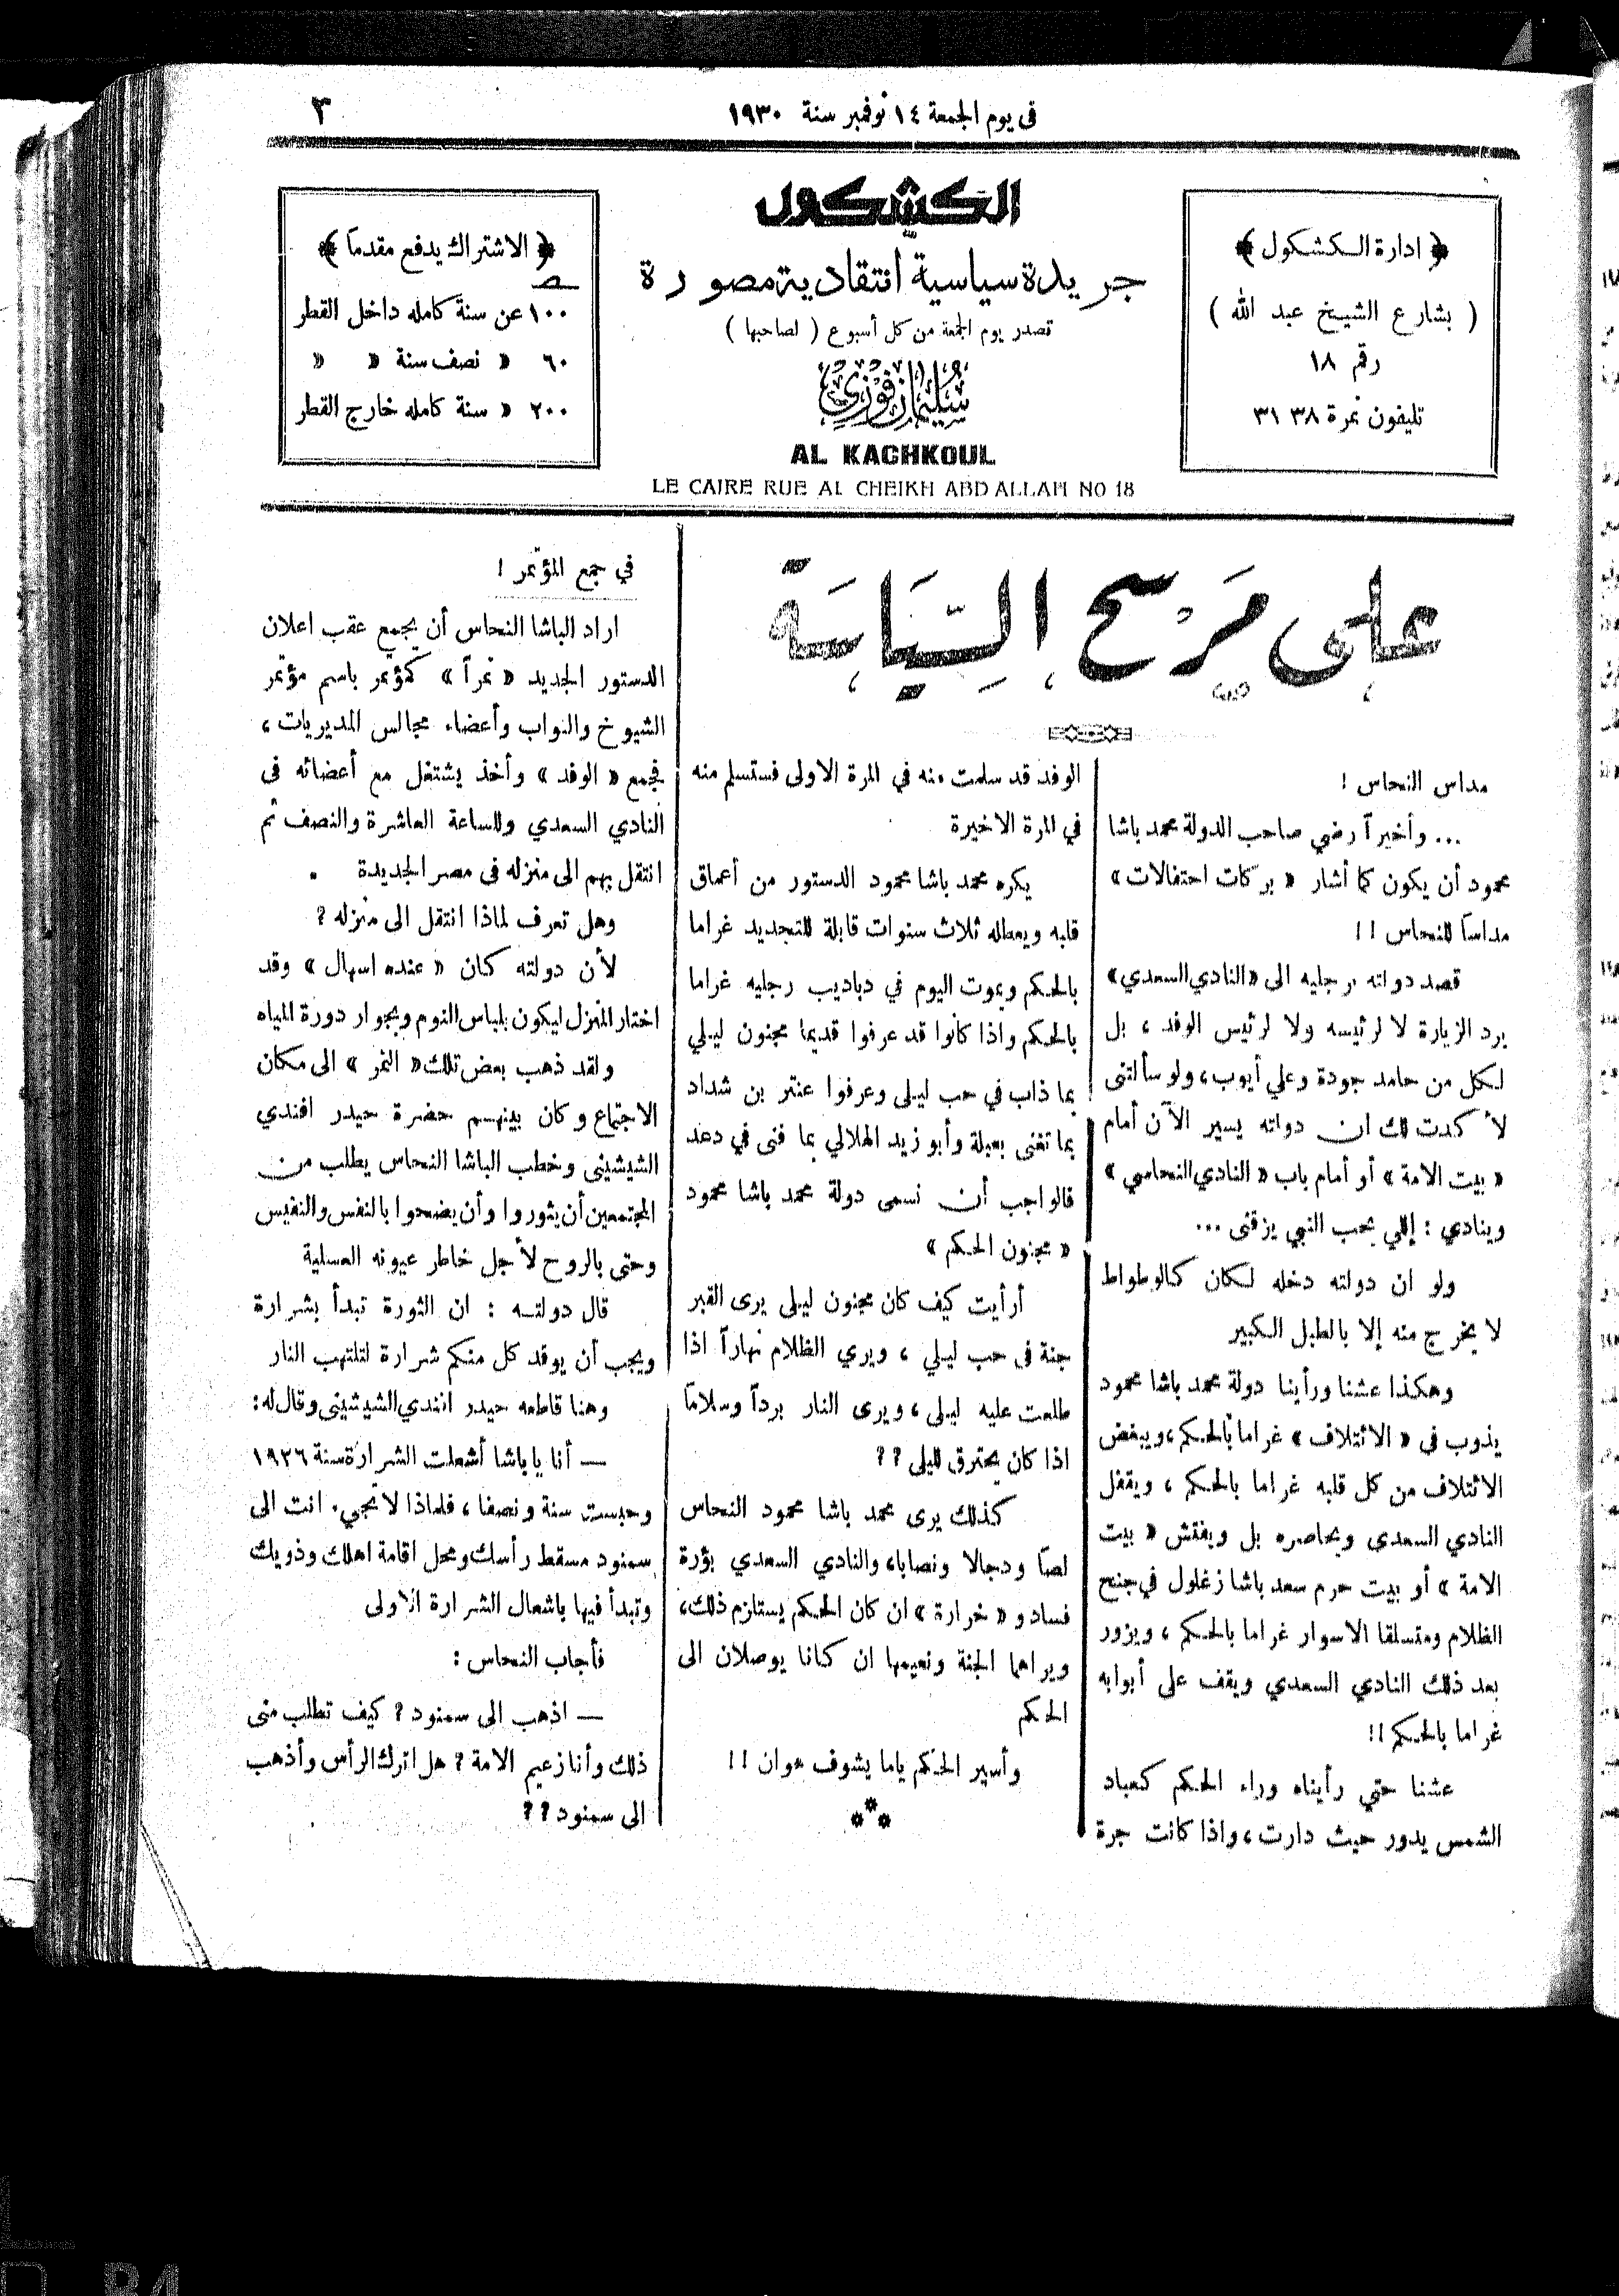 في يوم الجمعة ١٤ نوفمبر سنة ١٩٣٠
٣
﴿ ادارة الكشكول ﴾
( بشارع الشيخ عبد الله )
رقم ١٨
تليفون نمرة ٣٨ ٣١
الكشكول
جريدة سياسية انتقادية مصورة
تصدر يوم الجمعة من كل أسبوع ( لصاحبها )
سليمان فوزي
AL KACHKOUL
LE CAIRE RUE AL CHEIKH ABD ALLAH NO 18
﴿ الاشتراك يدفع مقدماً ﴾
١٠٠ عن سنة كامله داخل القطر
٦٠ « نصف سنة « «
٢٠٠ « سنة كامله خارج القطر
على مرسح السياسة
مداس النحاس !
... وأخيراً رضي صاحب الدولة محمد باشا
محمود أن يكون كما أشار « بركات احتفالات »
مداساً للنحاس ! !
قصد دولته برجليه الى «النادي السعدي»
يرد الزيارة لا لرئيسه ولا لرئيس الوفد ، بل
لكل من حامد جودة وعلي أيوب، ولو سألتنى
لأكدت لك ان دولته يسير الآن أمام
« بيت الامة » أو أمام باب « النادي النحاسي »
وينادي : إللي يحب النبي يزقنى ...
ولو ان دولته دخله لكان كالوطواط
لا يخرج منه إلا بالطبل الكبير
وهكذا عشنا ورأينا دولة محمد باشا محمود
يذوب في « الائتلاف » غراما بالحكم، ويبغض
الائتلاف من كل قلبه غراما بالحكم ، ويقفل
النادي السعدى ويحاصره بل ويفتش « بيت
الامة » أو بيت حرم سعد باشا زغلول في جنح
الظلام ومتسلقا الاسوار غراما بالحكم ، ويزور
بعد ذلك النادي السعدي ويقف على أبوابه
غراما بالحكم ! !
عشنا حتي رأيناه وراء الحكم كعباد
الشمس يدور حيث دارت ، واذا كانت جرة
الوفد قد سلمت منه في المرة الاولى فستسلم منه
في المرة الاخيرة
يكره محمد باشا محمود الدستور من أعماق
قلبه ويعطله ثلاث سنوات قابلة للتجديد غراما
بالحكم ويموت اليوم في دباديب رجليه غراما
بالحكم واذا كانوا قد عرفوا قديما مجنون ليلي
بما ذاب في حب ليلى وعرفوا عنتر بن شداد
بما تغنى بعبلة وأبو زيد الهلالي بما فنى في دعد
فالواجب أن نسمى دولة محمد باشا محمود
« مجنون الحكم »
أرأيت كيف كان مجنون ليلى يرى القبر
جنة في حب ليلي ، ويري الظلام نهاراً اذا
طلعت عليه ليلى ، ويرى النار برداً وسلاماً
اذا كان يحترق لليلى ؟ ؟
كذلك يرى محمد باشا محمود النحاس
لصاً ودجالا ونصابا، والنادي السعدي بؤرة
فساد و « خرارة » ان كان الحكم يستلزم ذلك،
ويراهما الجنة ونعيمها ان كانا يوصلان الى
الحكم
وأسير الحكم ياما يشوف هوان ! !
***
في جمع المؤتمر !
اراد الباشا النحاس أن يجمع عقب اعلان
الدستور الجديد « نمراً » كمؤتمر باسم مؤتمر
الشيوخ والنواب وأعضاء مجالس المديريات ،
فجمع « الوفد » وأخذ يشتغل مع أعضائه في
النادي السعدي وللساعة العاشرة والنصف ثم
انتقل بهم الى منزله في مصر الجديدة .
وهل تعرف لماذا انتقل الى منزله ؟
لأن دولته كان « عنده اسهال » وقد
اختار المنزل ليكون بلباس النوم وبجوار دورة المياه
ولقد ذهب بعض تلك « النمر » الى مكان
الاجتماع وكان بينهم حضرة حيدر افندي
الشيشينى وخطب الباشا النحاس يطلب من
المجتمعين أن يثوروا وأن يضحوا بالنفس والنفيس
وحتى بالروح لأجل خاطر عيونه العسلية
قال دولته : ان الثورة تبدأ بشرارة
ويجب أن يوقد كل منكم شرارة لتلتهب النار
وهنا قاطعه حيدر افندي الشيشينى وقال له :
— أنا يا باشا أشعلت الشرارة سنة ١٩٢٦
وحبست سنة ونصفا ، فلماذا لا تجيء انت الى
سمنود مسقط رأسك ومحل اقامة اهلك وذويك
وتبدأ فيها باشعال الشرارة الاولى
فأجاب النحاس :
— اذهب الى سمنود ؟ كيف تطلب منى
ذلك وأنا زعيم الامة ؟ هل اترك الرأس وأذهب
الى سمنود ؟ ؟